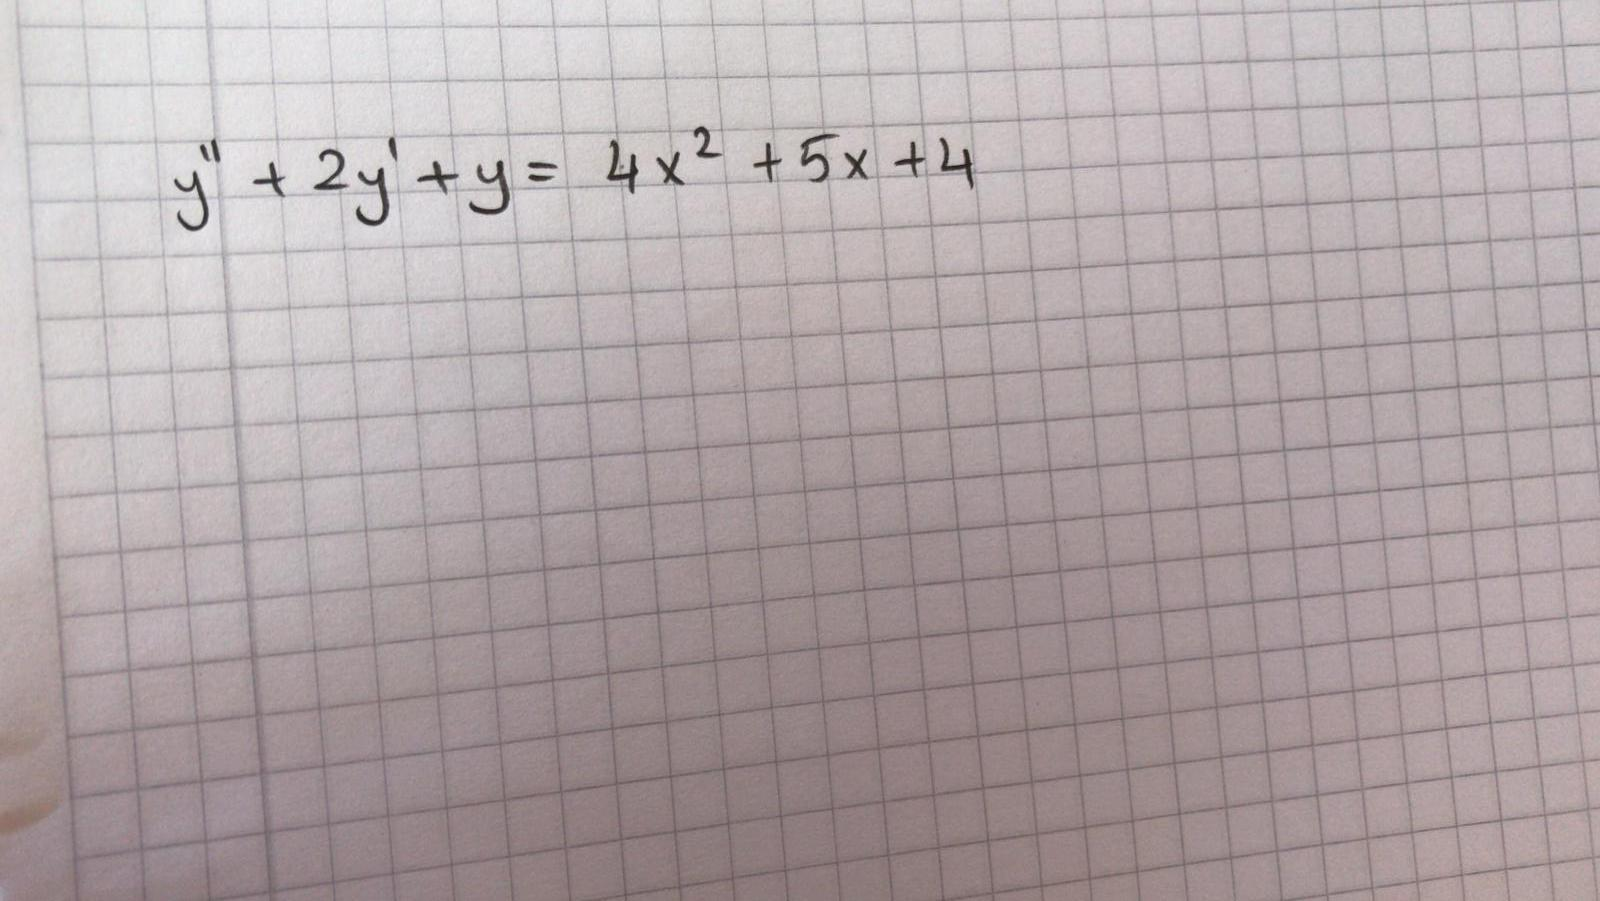 y'' + 2y' + y = 4x² + 5x + 4